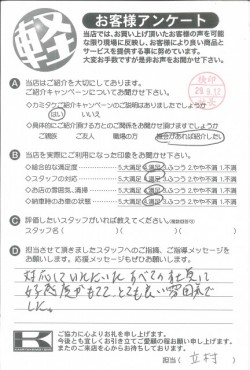 軽
お客様アンケート
当店では、お買い上げ頂いたお客様の声を可能
な限り現場に反映し、お客様により良い商品と
サービスを提供する事に努めています。
大変お手数ですが是非お声をお聞かせ下さい。
A 当店はご紹介を大切にしております。
ご紹介キャンペーンについてお聞かせ下さい。
◇カミタケご紹介キャンペーンのご説明はありましたでしょうか
はい いいえ
◇具体的にご紹介頂ける方とのご関係をお聞かせ頂けますでしょうか
ご親族 ご友人 職場の方 機会があれば紹介したい
B 当店を実際にご利用になった印象をお聞かせ下さい。
◇総合的な満足度 5.大満足 4.満足 3.ふつう 2.やや不満 1.不満
◇スタッフの対応 5.大満足 4.満足 3.ふつう 2.やや不満 1.不満
◇お店の雰囲気、清掃 5.大満足 4.満足 3.ふつう 2.やや不満 1.不満
◇納車時のお車の状態 5.大満足 4.満足 3.ふつう 2.やや不満 1.不満
C 評価したいスタッフがいれば教えてください。(複数回答可)
スタッフ名( )( )( )
D 担当させて頂きましたスタッフへのご指摘、ご指導メッセージを
お願いします。応援メッセージもぜひお願いします。
対応していただいた すべての社員に
好感度がもてて、とても良い雰囲気で
した。
ご協力に心よりお礼を申し上げます。
今後とも宜しくお引き立てご愛顧の程お願い申し上げます。
またのご来店を心からお待ちしております。
担当( 立村 )